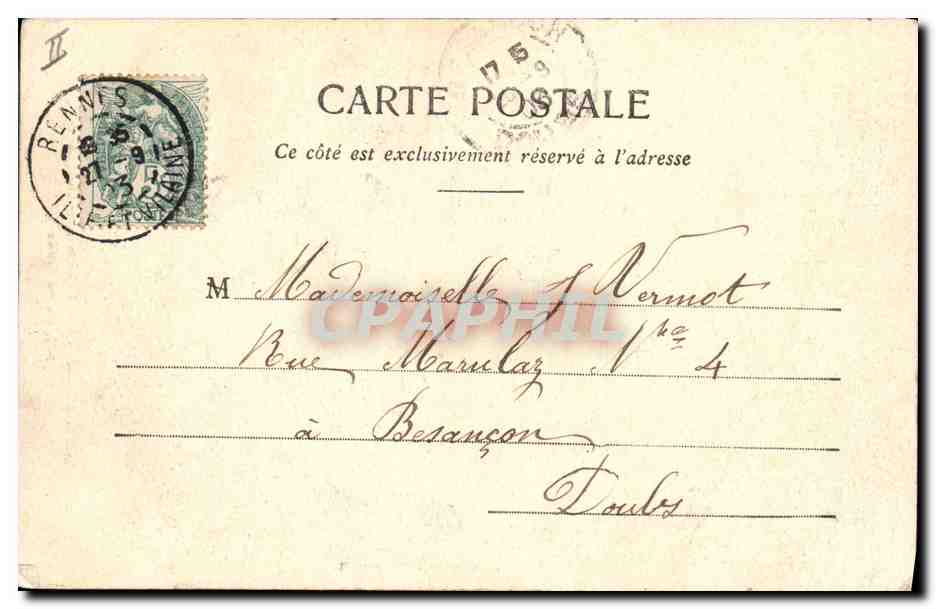 II
RENNES
21 - 9
ILLE-ET-VILAINE
17 15
CARTE POSTALE
Ce côté est exclusivement réservé à l'adresse
M Mademoiselle J Vermot
CPAPHIL
Rue Marulaz N° 4
à Besançon
Doubs